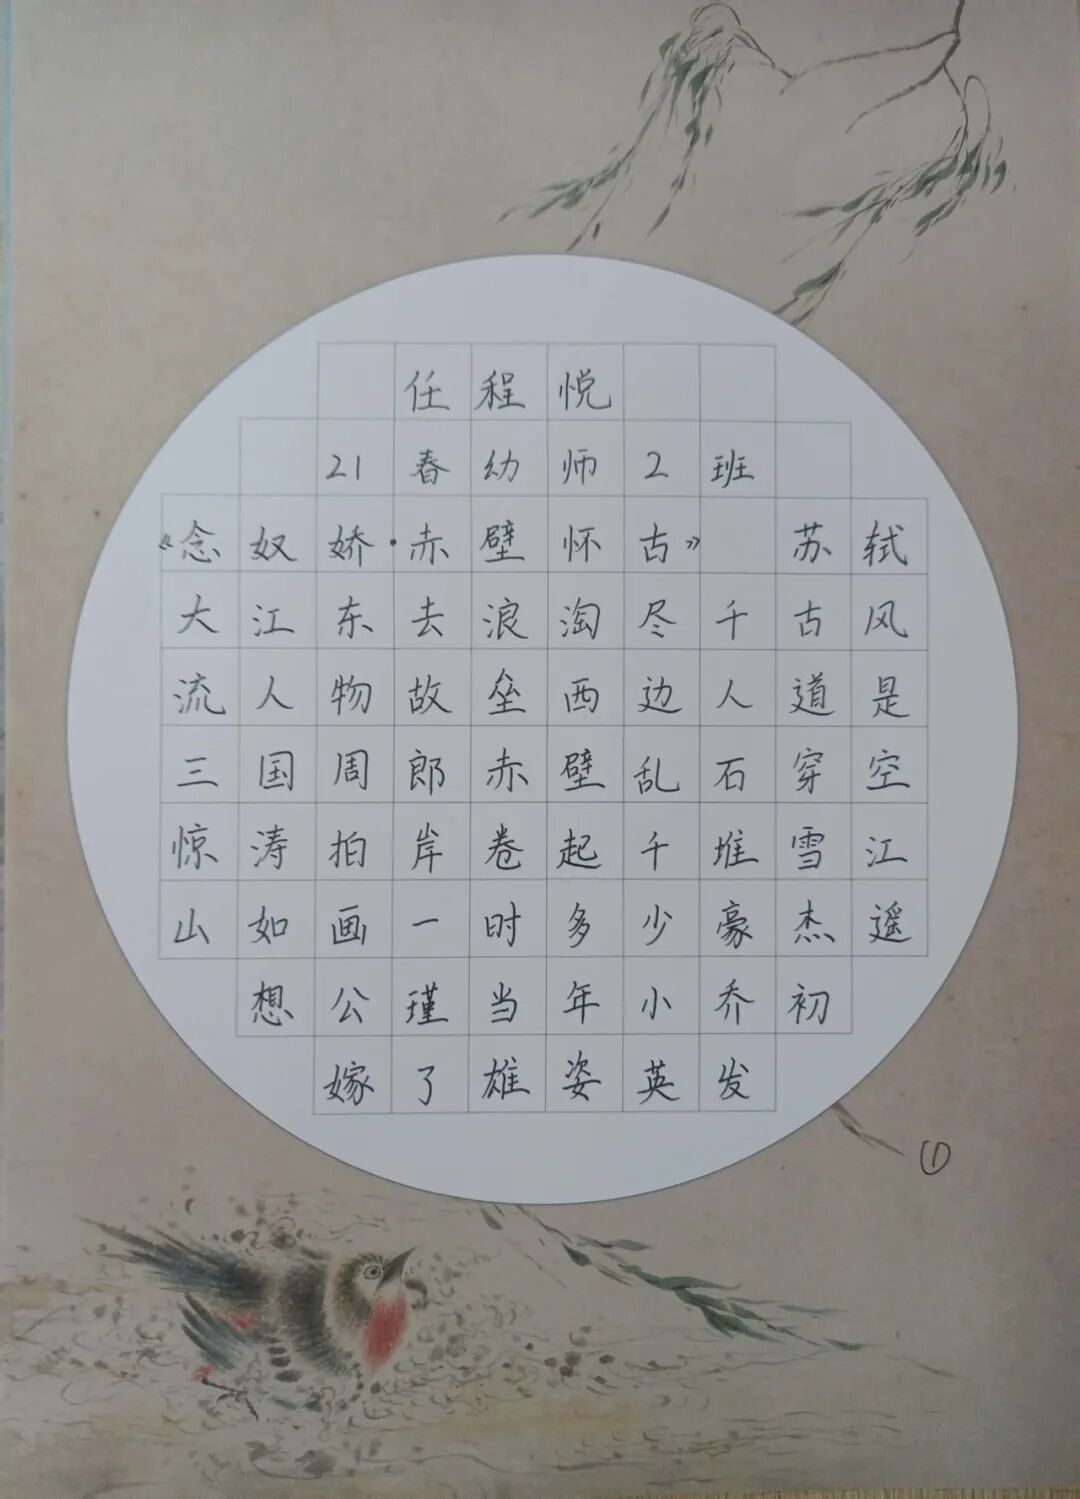 任程悦
21春幼师2班
《念奴娇·赤壁怀古》 苏轼
大江东去浪淘尽千古风
流人物故垒西边人道是
三国周郎赤壁乱石穿空
惊涛拍岸卷起千堆雪江
山如画一时多少豪杰遥
想公瑾当年小乔初
嫁了雄姿英发
①